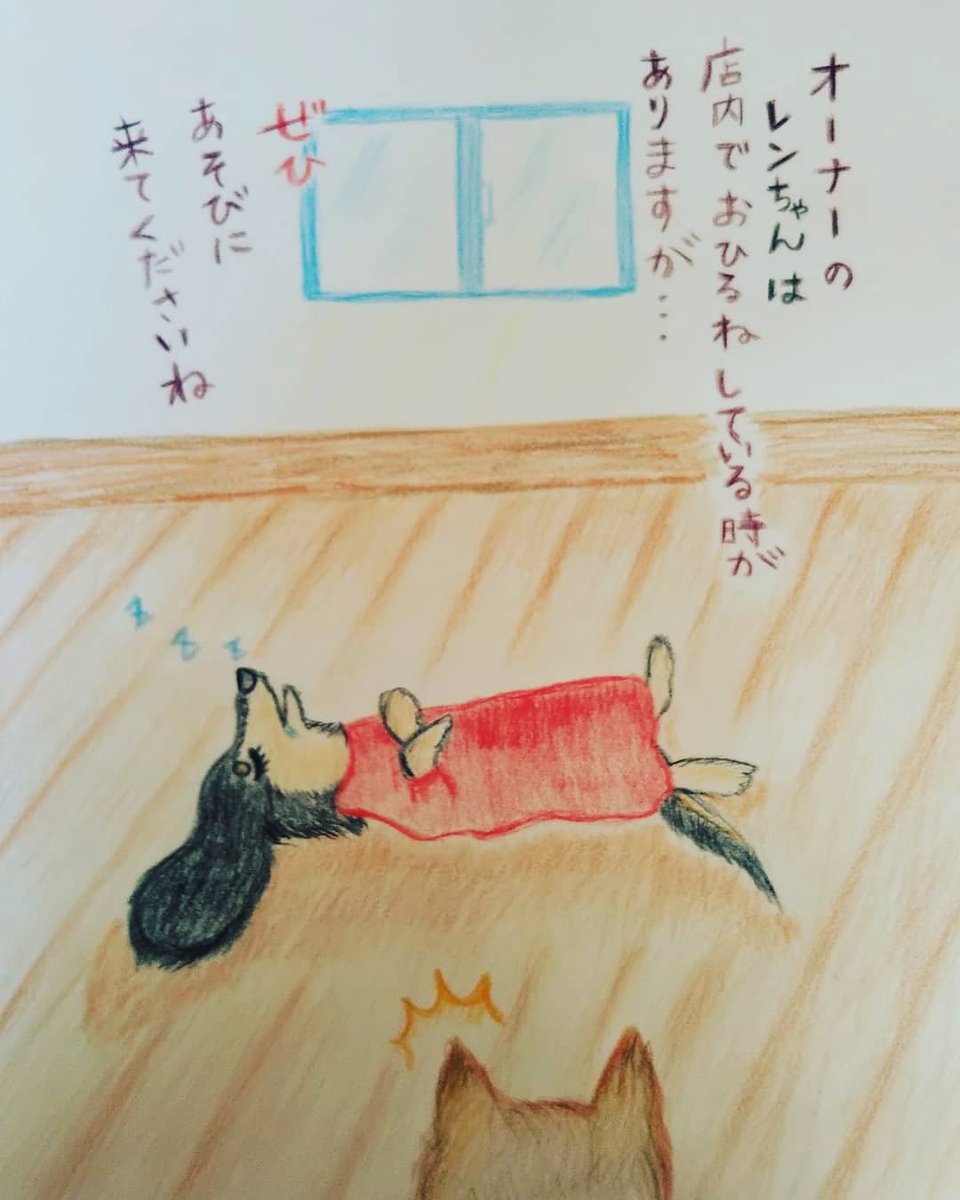 オーナーの
レンちゃんは
店内でおひるねしている時が
ありますが…
ぜひ
あそびに
来てくださいね
z z z